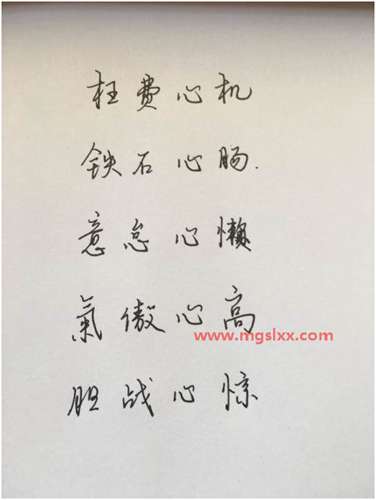 枉费心机
铁石心肠.
意怠心懒
氣傲心高
www.mgslxx.com
胆战心惊